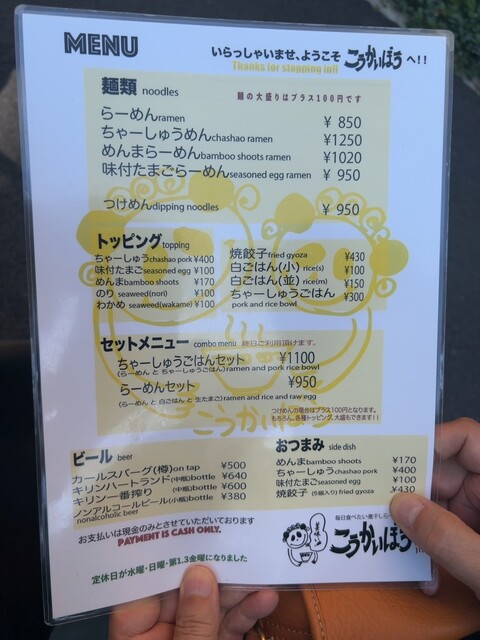 MENU
いらっしゃいませ、ようこそ こうかいぼう へ!!
Thanks for stopping in!!
麺類 noodles
麺の大盛りはプラス100円です
らーめんramen ¥ 850
ちゃーしゅうめんchashao ramen ¥1250
めんまらーめんbamboo shoots ramen ¥1020
味付たまごらーめんseasoned egg ramen ¥ 950
つけめんdipping noodles ¥ 950
トッピングtopping
ちゃーしゅうchashao pork ¥400
味付たまごseasoned egg ¥100
めんまbamboo shoots ¥170
のり seaweed(nori) ¥100
わかめ seaweed(wakame) ¥100
焼餃子fried gyoza ¥430
白ごはん(小)rice(s) ¥100
白ごはん(並)rice(m) ¥150
ちゃーしゅうごはん ¥300
pork and rice bowl
セットメニュー combo menu 終日ご利用頂けます。
ちゃーしゅうごはんセット ¥1100
(らーめん と ちゃーしゅうごはん)ramen and pork rice bowl
らーめんセット ¥950
(らーめん と 白ごはん と 生たまご)ramen and rice and raw egg
つけめんの場合はプラス100円となります。
もちろん、各種トッピング、大盛もできます!!
こうかいぼう
ビール beer
カールスバーグ(樽)on tap ¥500
キリンハートランド(中瓶)bottle ¥640
キリン一番搾り (中瓶)bottle ¥600
ノンアルコールビール(小瓶)bottle ¥380
nonalcoholic beer
おつまみ side dish
めんまbamboo shoots ¥170
ちゃーしゅうchashao pork ¥400
味付たまごseasoned egg ¥100
焼餃子 (5個入り)fried gyoza ¥430
お支払いは現金のみとさせていただいております
PAYMENT IS CASH ONLY.
定休日が水曜・日曜・第1.3金曜になりました
美味い
毎日食べたい煮干しらー
こうかいぼう